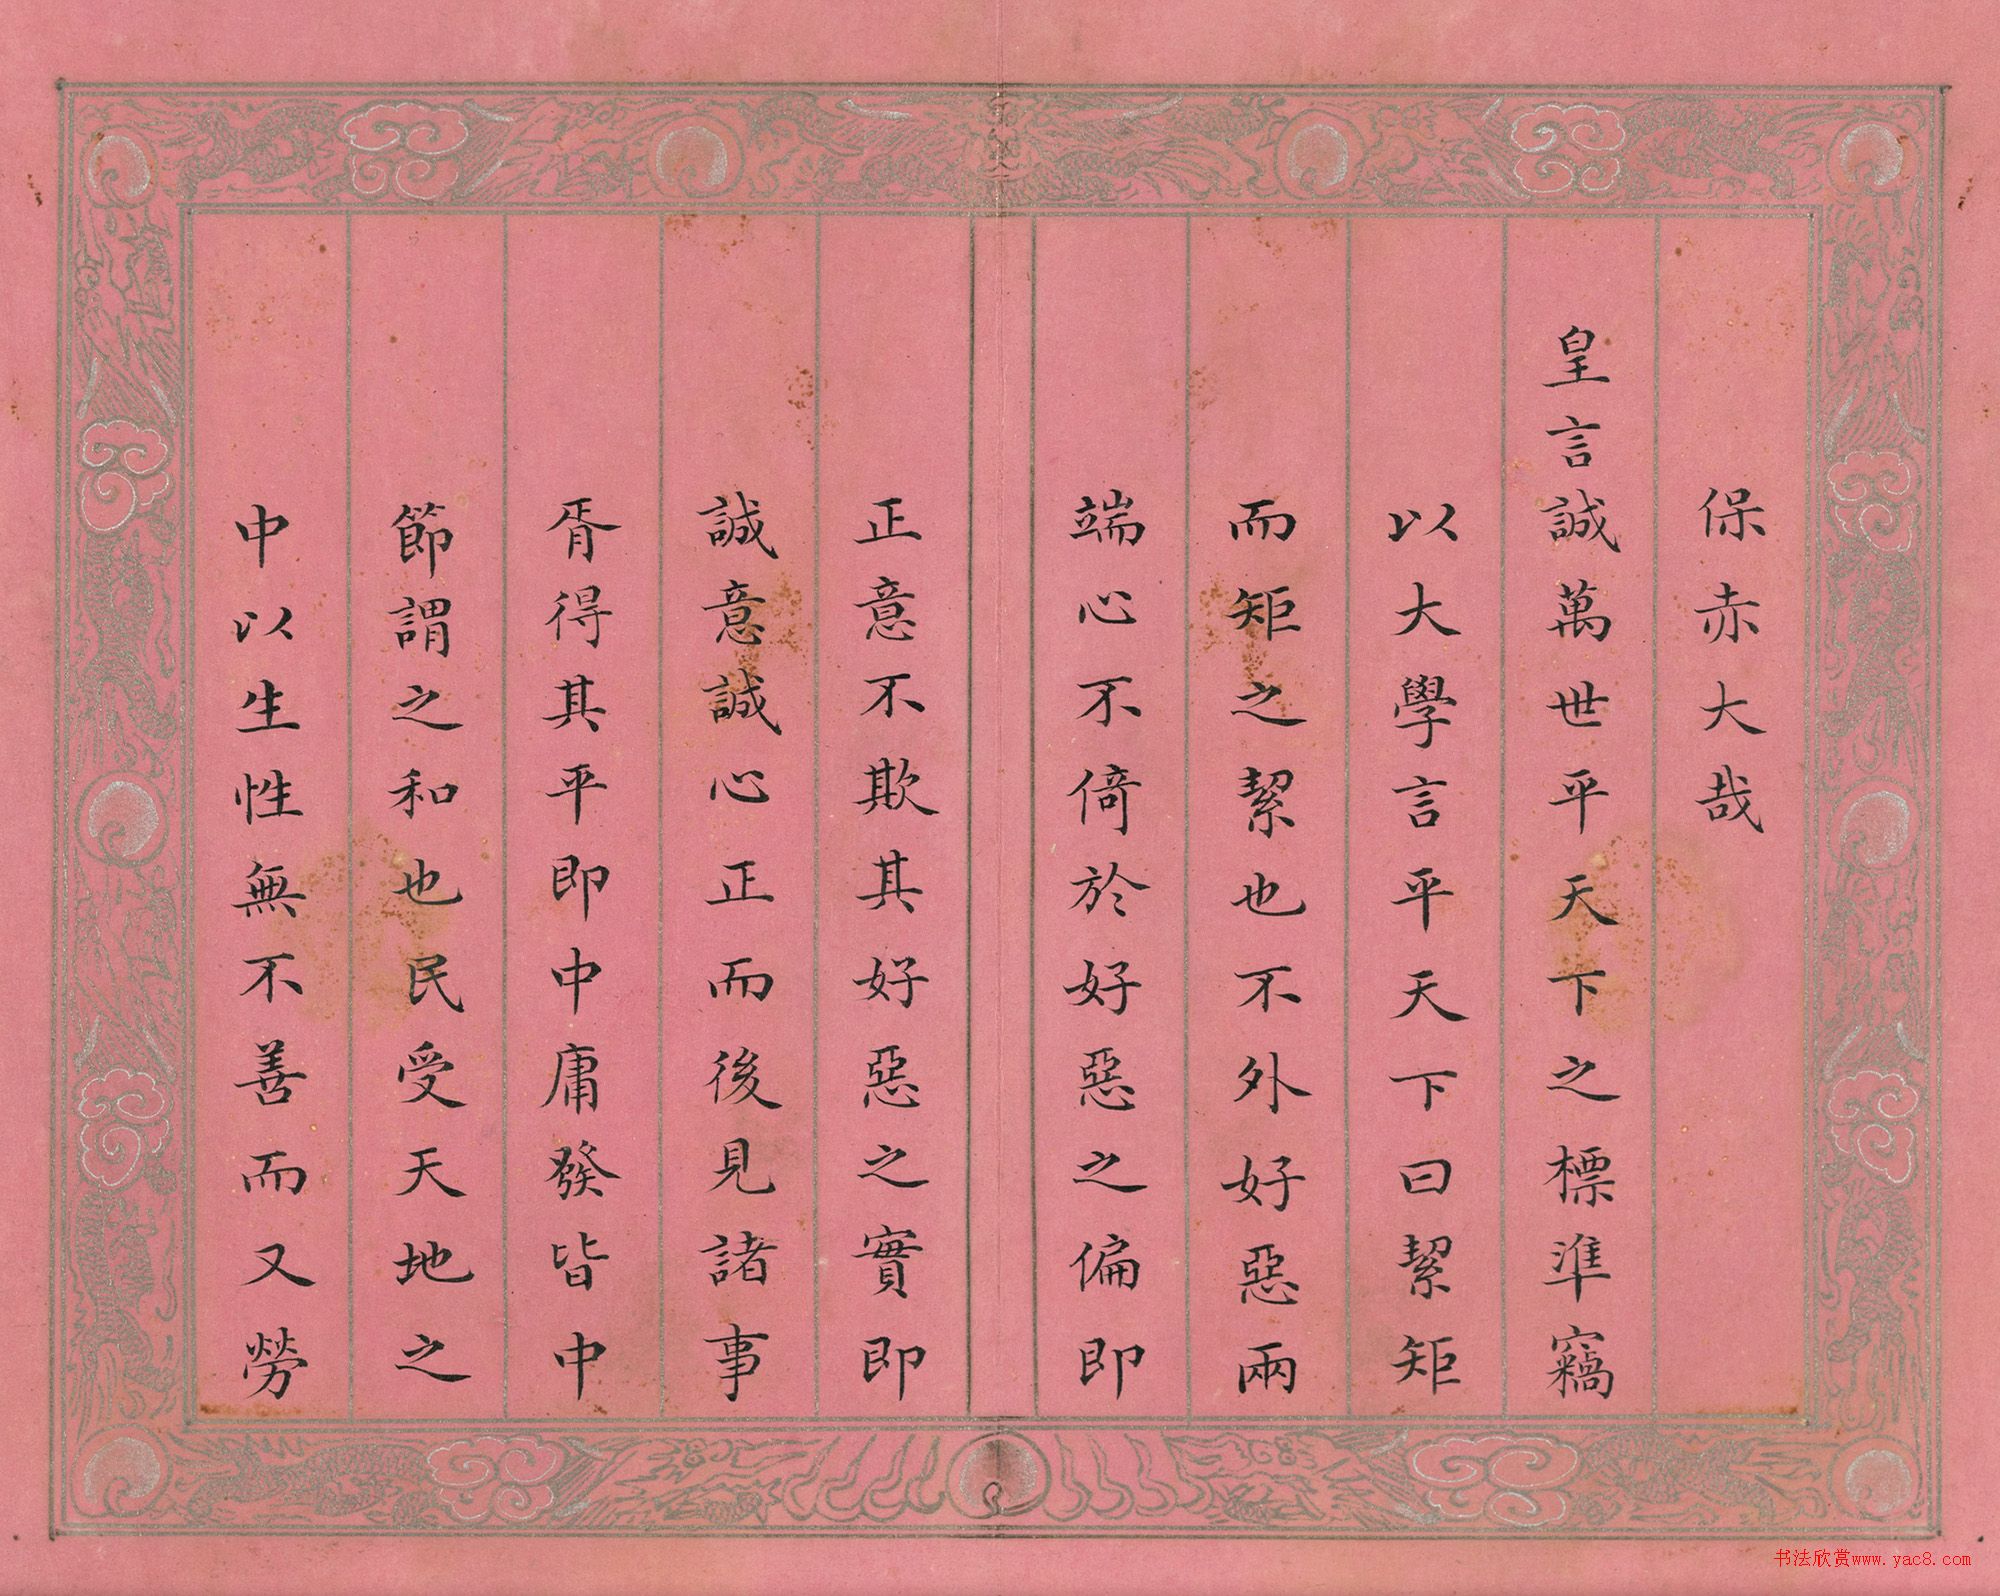 保赤大哉
皇言誠萬世平天下之標準竊
以大學言平天下曰絜矩
而矩之絜也不外好惡兩
端心不倚於好惡之偏即
正意不欺其好惡之實即
誠意誠心正而後見諸事
胥得其平即中庸發皆中
節謂之和也民受天地之
中以生性無不善而又勞
书法欣赏www.yac8.com